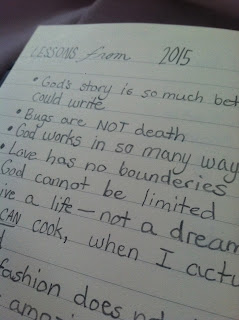 LESSONS from 2015
• God's story is so much bet
could write
• Bugs are NOT death
• God works in so many way
• Love has no bounderies
God cannot be limited
ive a life — not a dream
CAN cook, when I actu
fashion does no